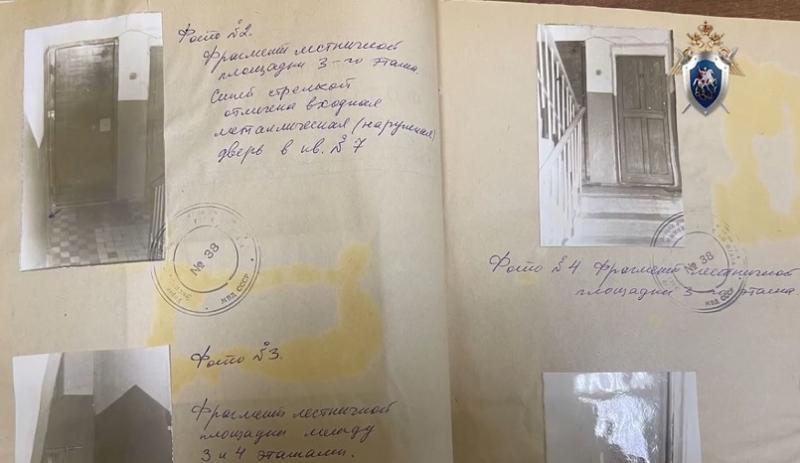 Фото №2.
Фрагмент лестничной
площадки 3-го этажа.
Синей стрелкой
отмечена входная
металлическая (наружная)
дверь в кв. №7
№ 38
МВД СССР
Фото №3.
Фрагмент лестничной
площадки между
3 и 4 этажами.
Фото №4 Фрагмент лестничной
площадки 3-го этажа.
№ 38
МВД СССР